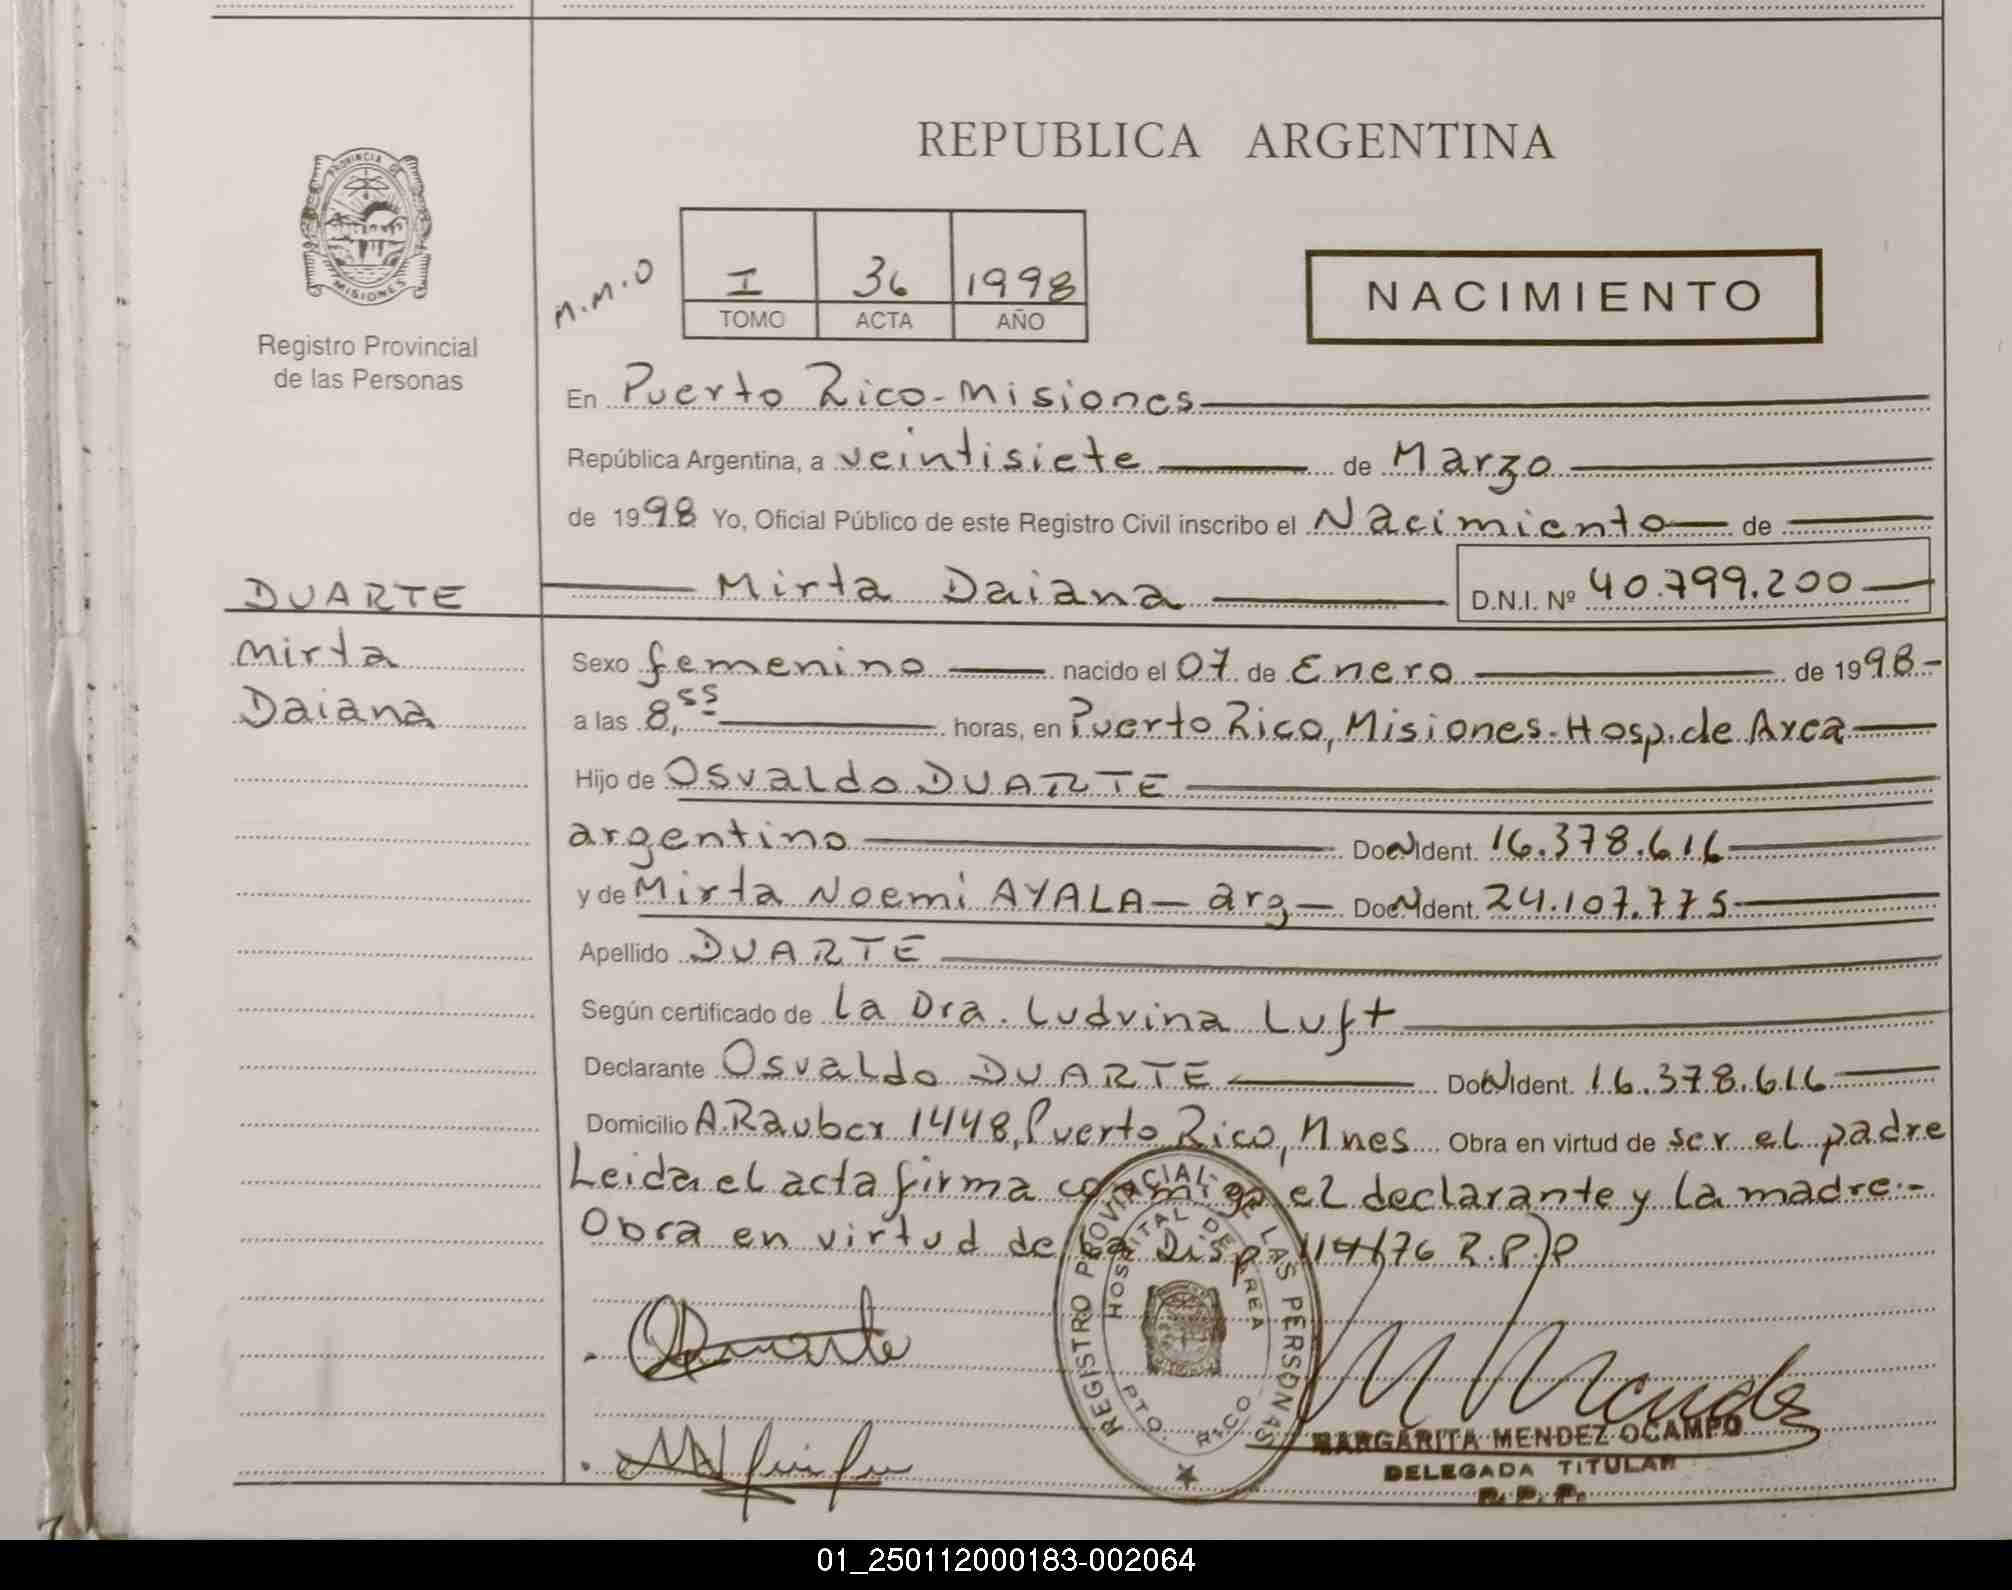 REPUBLICA ARGENTINA
PROVINCIA DE
MISIONES
Registro Provincial
de las Personas
M.M.O
I 36 1998
TOMO ACTA AÑO
NACIMIENTO
En Puerto Rico-Misiones
República Argentina, a veintisiete de Marzo
de 1998 Yo, Oficial Público de este Registro Civil inscribo el Nacimiento de
DUARTE
Mirta Daiana D.N.I. Nº 40.799.200
Mirta
Daiana
Sexo femenino nacido el 07 de Enero de 1998-
a las 8,55 horas, en Puerto Rico, Misiones-Hosp. de Area
Hijo de Osvaldo DUARTE
argentino Ident. 16.378.616
y de Mirta Noemi AYALA - arg - Ident. 24.107.775
Apellido DUARTE
Según certificado de La Dra. Ludvina Luft
Declarante Osvaldo DUARTE Ident. 16.378.616
Domicilio A. Rauber 1448, Puerto Rico, Mnes Obra en virtud de ser el padre
Leida el acta firma conmigo el declarante y la madre.-
Obra en virtud de la Disp 114/76 R.P.P
REGISTRO PROVINCIAL DE LAS PERSONAS
HOSPITAL DE AREA
PTO. RICO
MARGARITA MENDEZ OCAMPO
DELEGADA TITULAR
R. P. P.
01_250112000183-002064